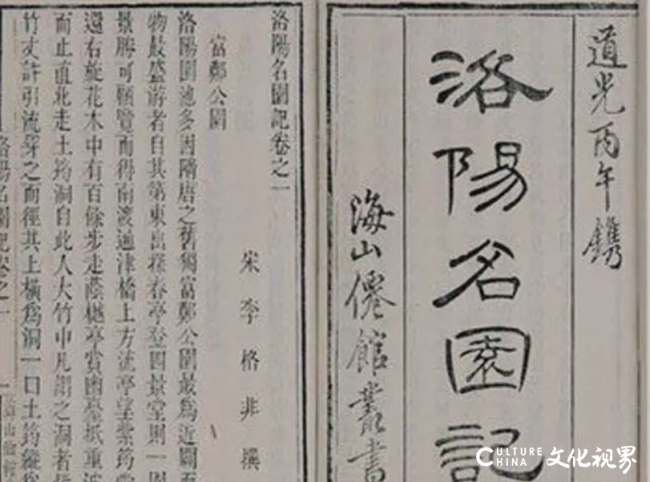 道光丙午鐫
洛陽名園記
海山僊館叢書
洛陽名園記卷之一
宋李格非撰
富鄭公園
洛陽園池多因隋唐之舊獨富鄭公園最爲近闢
物最盛游者自其第東出探春亭登四景堂則一園
景勝可顧覽而得南渡通津橋上方流亭望紫筠堂
還右旋花木中有百餘步走蔭樾亭賞幽臺抵重波
而止直北走土筠洞自此入大竹中凡謂之洞者
竹丈許引流穿之而徑其上橫爲洞一曰土筠縱爲
洛陽名園記卷之一
一
CULTURE CHINA 文化视界